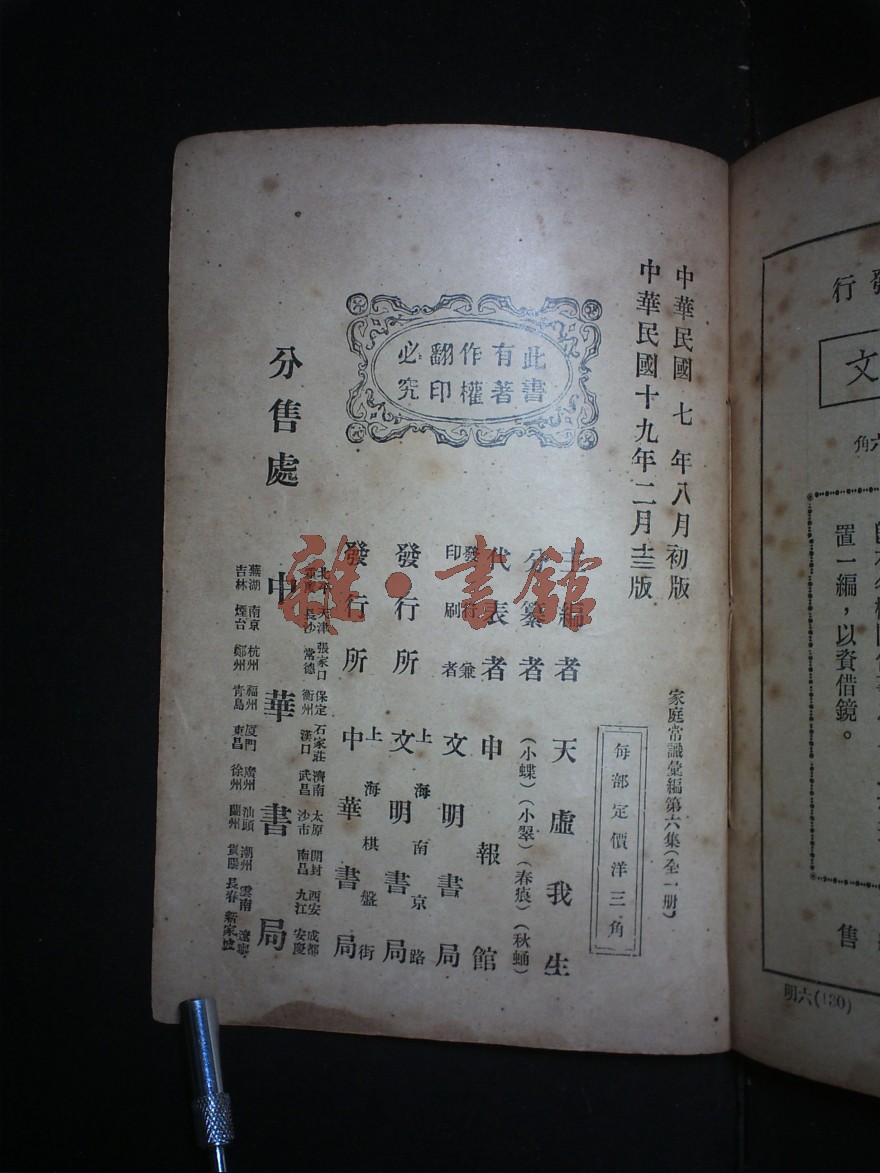 中華民國七年八月初版
中華民國十九年二月十三版
家庭常識彙編第六集(全一册)
每部定價洋三角
此書
有著
作權
翻印
必究
主編者 天虛我生
分纂者 (小蝶)(小翠)(春痕)(秋蛹)
代表者 申報館
發行兼印刷者 文明書局
發行所 上海南京路 文明書局
發行所 上海棋盤街 中華書局
分售處 中華書局
天津 張家口 保定 石家莊 濟南 太原 開封 西安 成都
長沙 常德 衡州 漢口 武昌 沙市 南昌 九江 安慶
蕪湖 南京 杭州 福州 廈門 廣州 汕頭 潮州 雲南 遼寧
吉林 煙台 鄭州 青島 東昌 徐州 蘭州 貴陽 長春 新家坡
雜·書館
行
文
六角
置一編,以資借鏡。
售
明六(130)